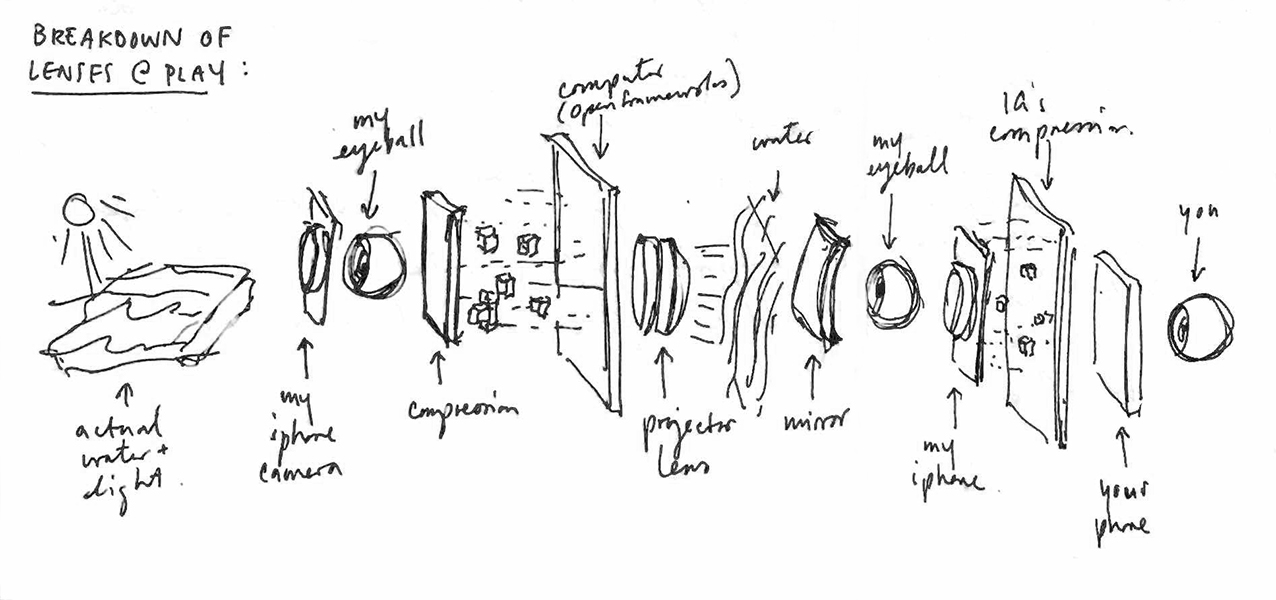 BREAKDOWN OF
LENSES @ PLAY:
my
eyeball
computer
(openframeworks)
water
my
eyeball
IG's
compression.
you
actual
water +
light.
my
iphone
camera
compression
projector
lens
mirror
my
iphone.
your
phone